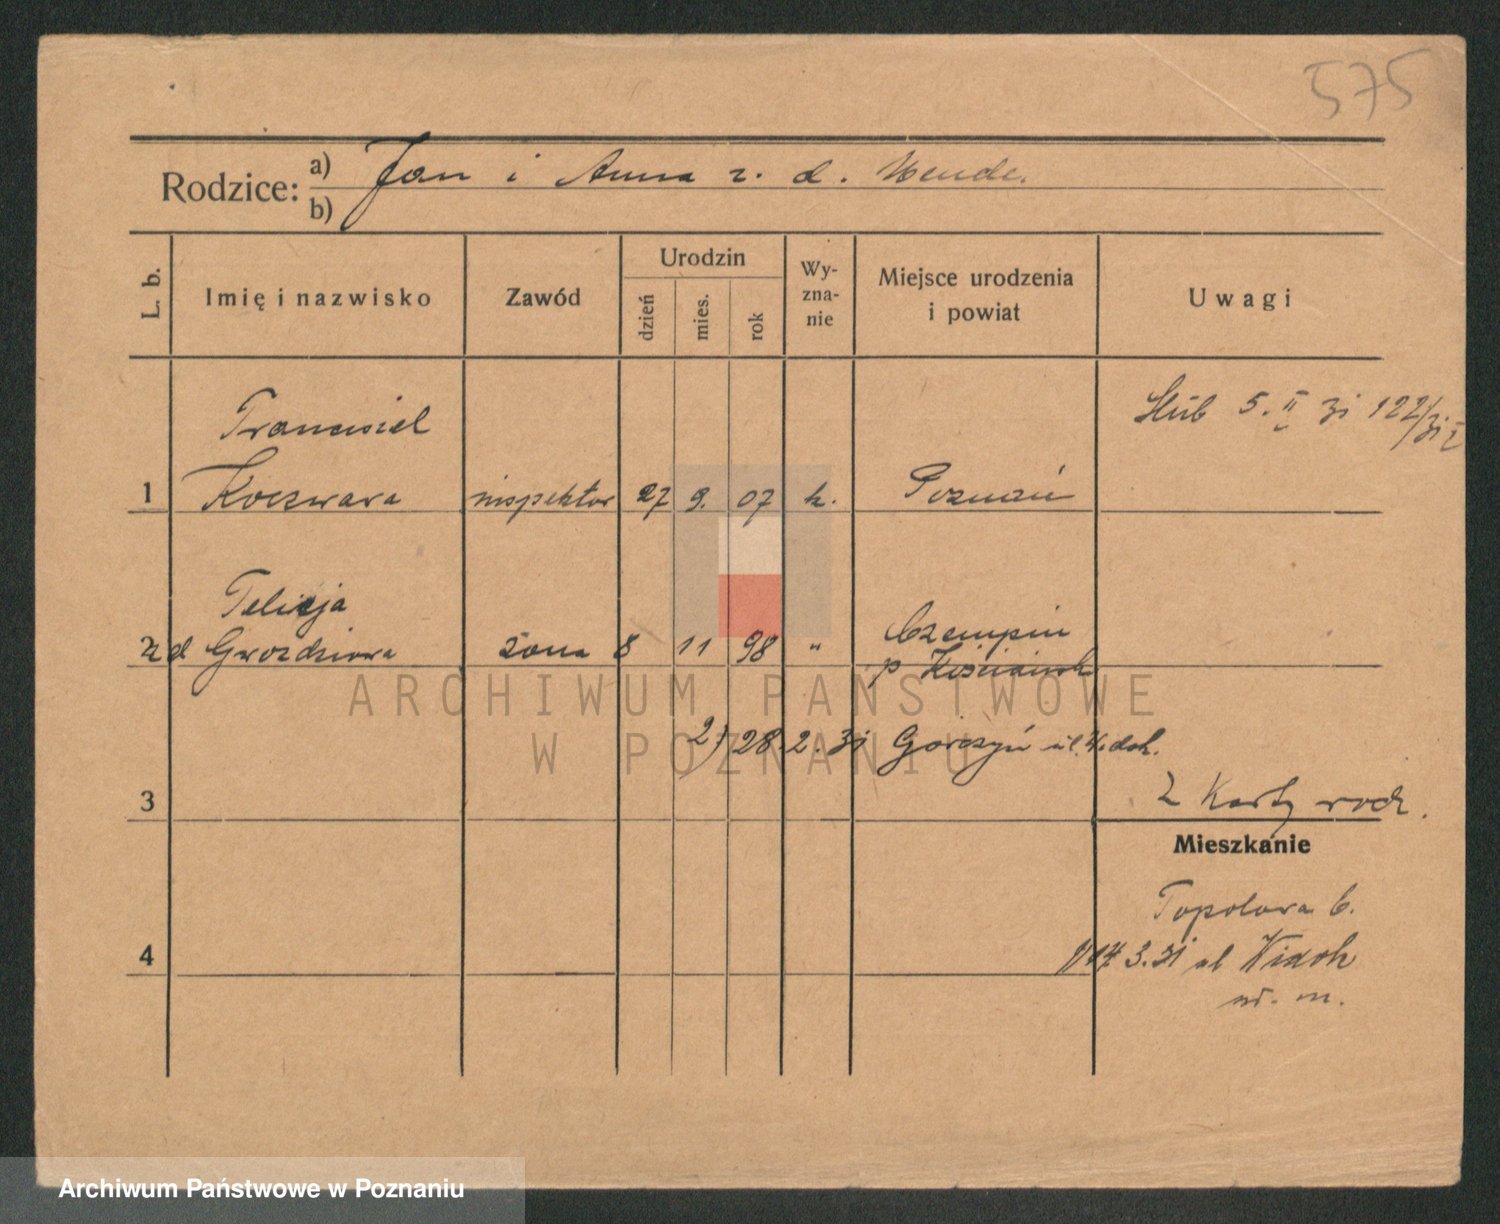 575
Rodzice: a) Jan i Anna z. d. Mende.
b)
L. b.
Imię i nazwisko
Zawód
Urodzin
dzień
mies.
rok
Wy-
zna-
nie
Miejsce urodzenia
i powiat
Uwagi
Ślub 5. II 31 122/31 I
Franciszek
1 Koczwara inspektor 27 9. 07 k. Poznań
Felicja
2 z d Gwozdziowa żona 8 11 98 " Czempiń
p Kościański
ARCHIWUM PAŃSTWOWE
W POZNANIU
2) 28. 2. 31 Górczyń ul. Widok.
3
2 Karty rodz.
Mieszkanie
Topolowa 6.
4
3.31 ul Widok
nr. m.
Archiwum Państwowe w Poznaniu